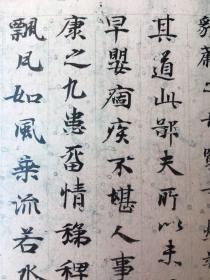 其道此鄙夫所以未
早嬰痼疾不堪人事
康之九患留情稊稗
飄凡如風乗流若水